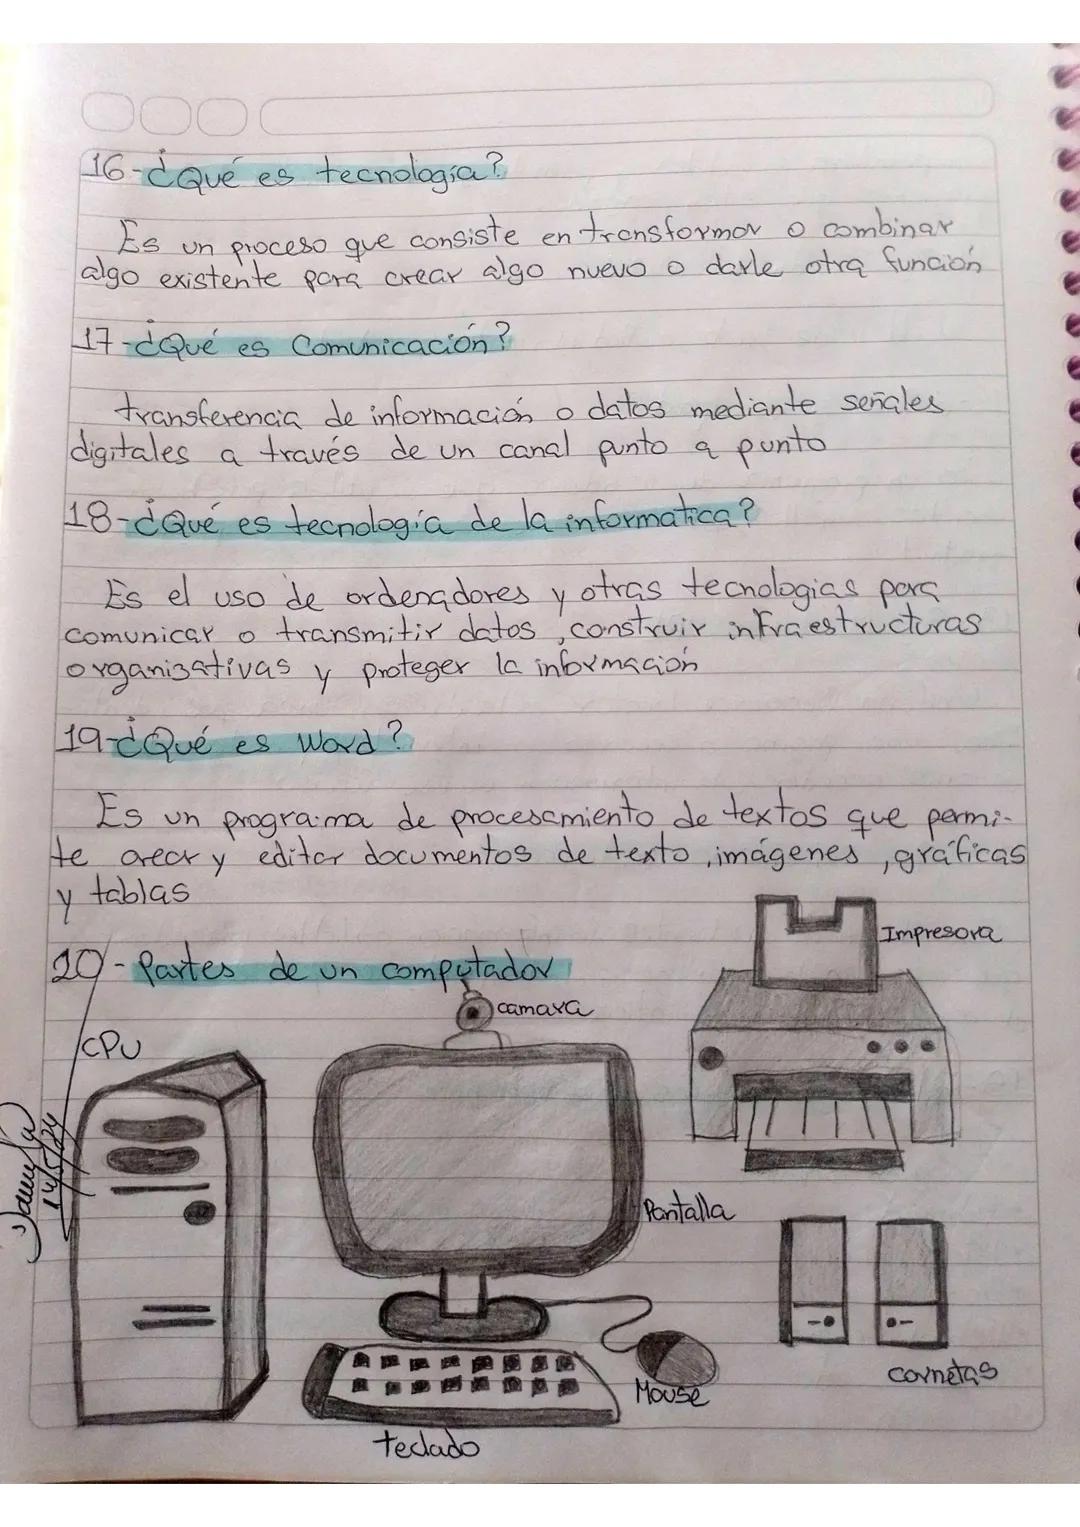 16-¿Qué es tecnología?
Es un proceso que consiste en transformar o combinar
algo existente para crear algo nuevo o darle otra función
17-¿Qué es Comunicación?
transferencia de información o datos mediante señales
digitales a través de un canal punto a punto
18-¿Qué es tecnología de la informatica?
Es el uso de ordenadores y otras tecnologias para
comunicar o transmitir datos, construir infraestructuras
organizativas y proteger la información
19-¿Qué es Word?
Es un programa de procesamiento de textos que permi-
te crear y editar documentos de texto, imágenes, gráficas
y tablas
20- Partes de un computador
Impresora
camara
CPU
14/5/24
Pantalla
cornetas
Mouse
teclado